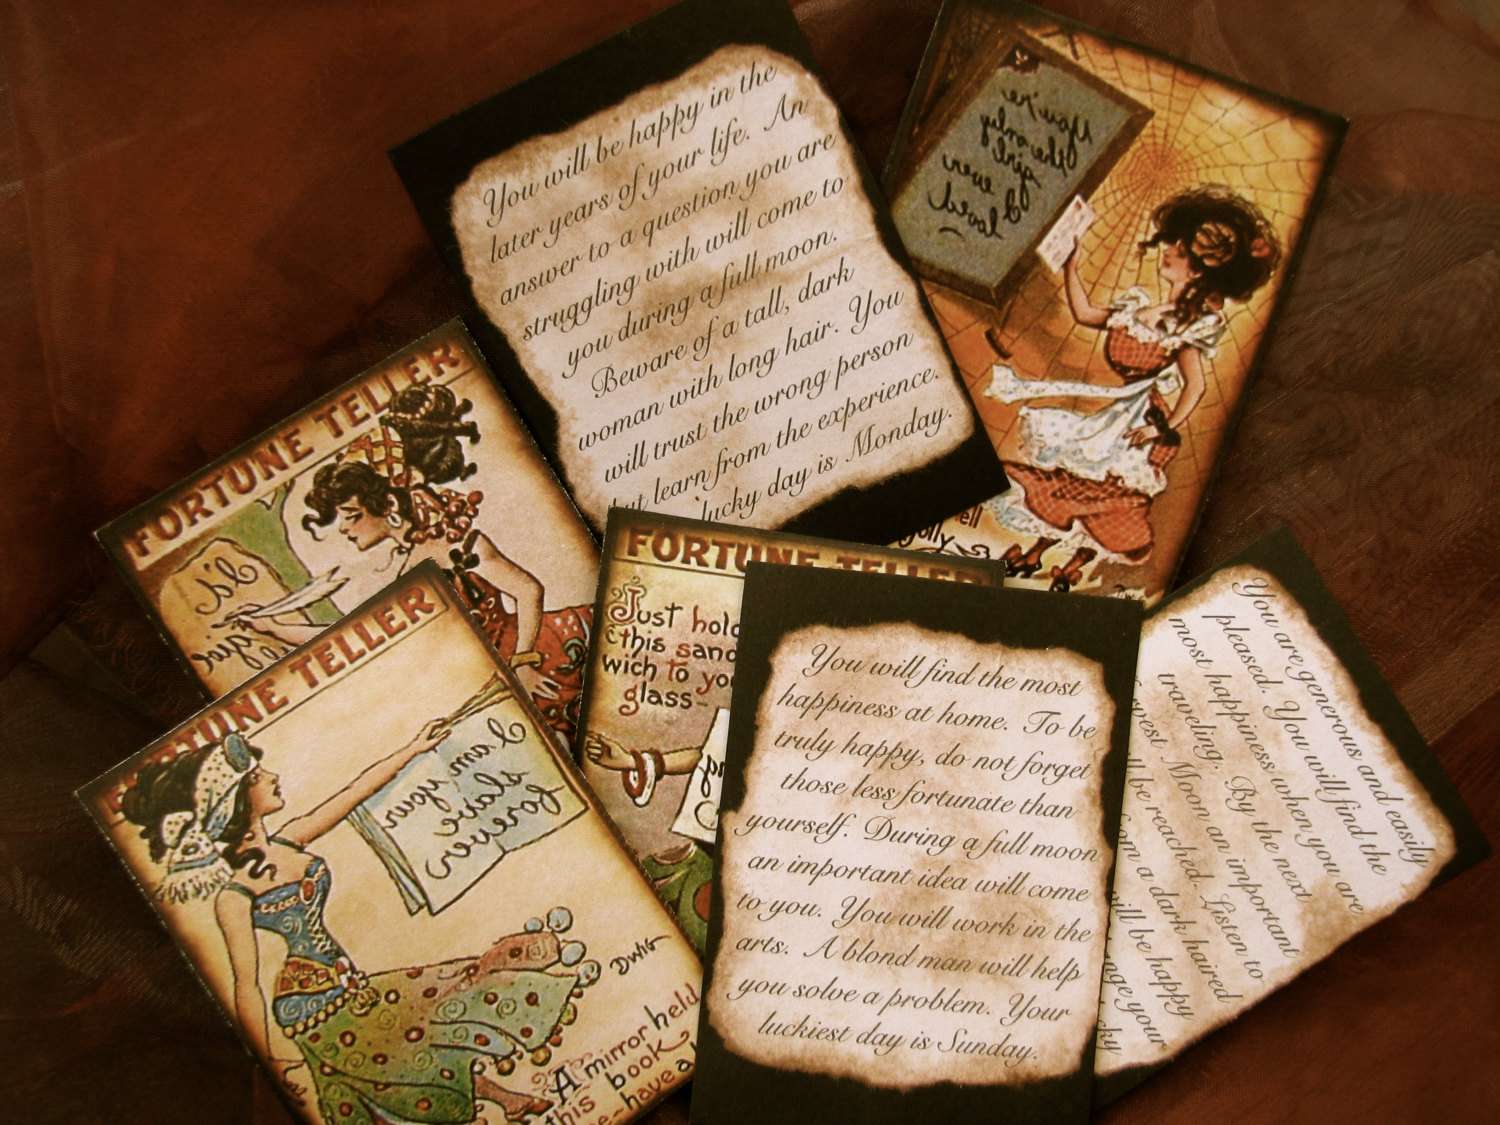 You will be happy in the
later years of your life. An
answer to a question you are
struggling with will come to
you during a full moon.
Beware of a tall, dark
woman with long hair. You
will trust the wrong person
but learn from the experience.
lucky day is Monday.
You're
the only
girl
I ever
loved
tell
jolly
FORTUNE TELLER
FORTUNE TELLER
I am your
slave
forever
DWIG
A mirror held
this book
have a
FORTUNE TELLER
Just hold
this sand
wich to yo
glass-
You will find the most
happiness at home. To be
truly happy, do not forget
those less fortunate than
yourself. During a full moon
an important idea will come
to you. You will work in the
arts. A blond man will help
you solve a problem. Your
luckiest day is Sunday.
You are generous and easily
pleased. You will find the
most happiness when you are
traveling. By the next
Moon an important
be reached. Listen to
from a dark haired
will be happy
your